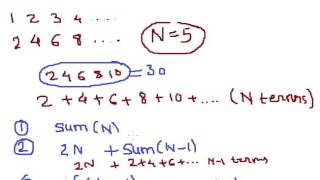 1 2 3 4 ....
2 4 6 8 ....
N=5
2 4 6 8 10 =30
2 + 4 + 6 + 8 + 10 + .... (N terms)
① Sum(N)
② 2N + Sum(N-1)
2N + 2+4+6+... N-1 terms